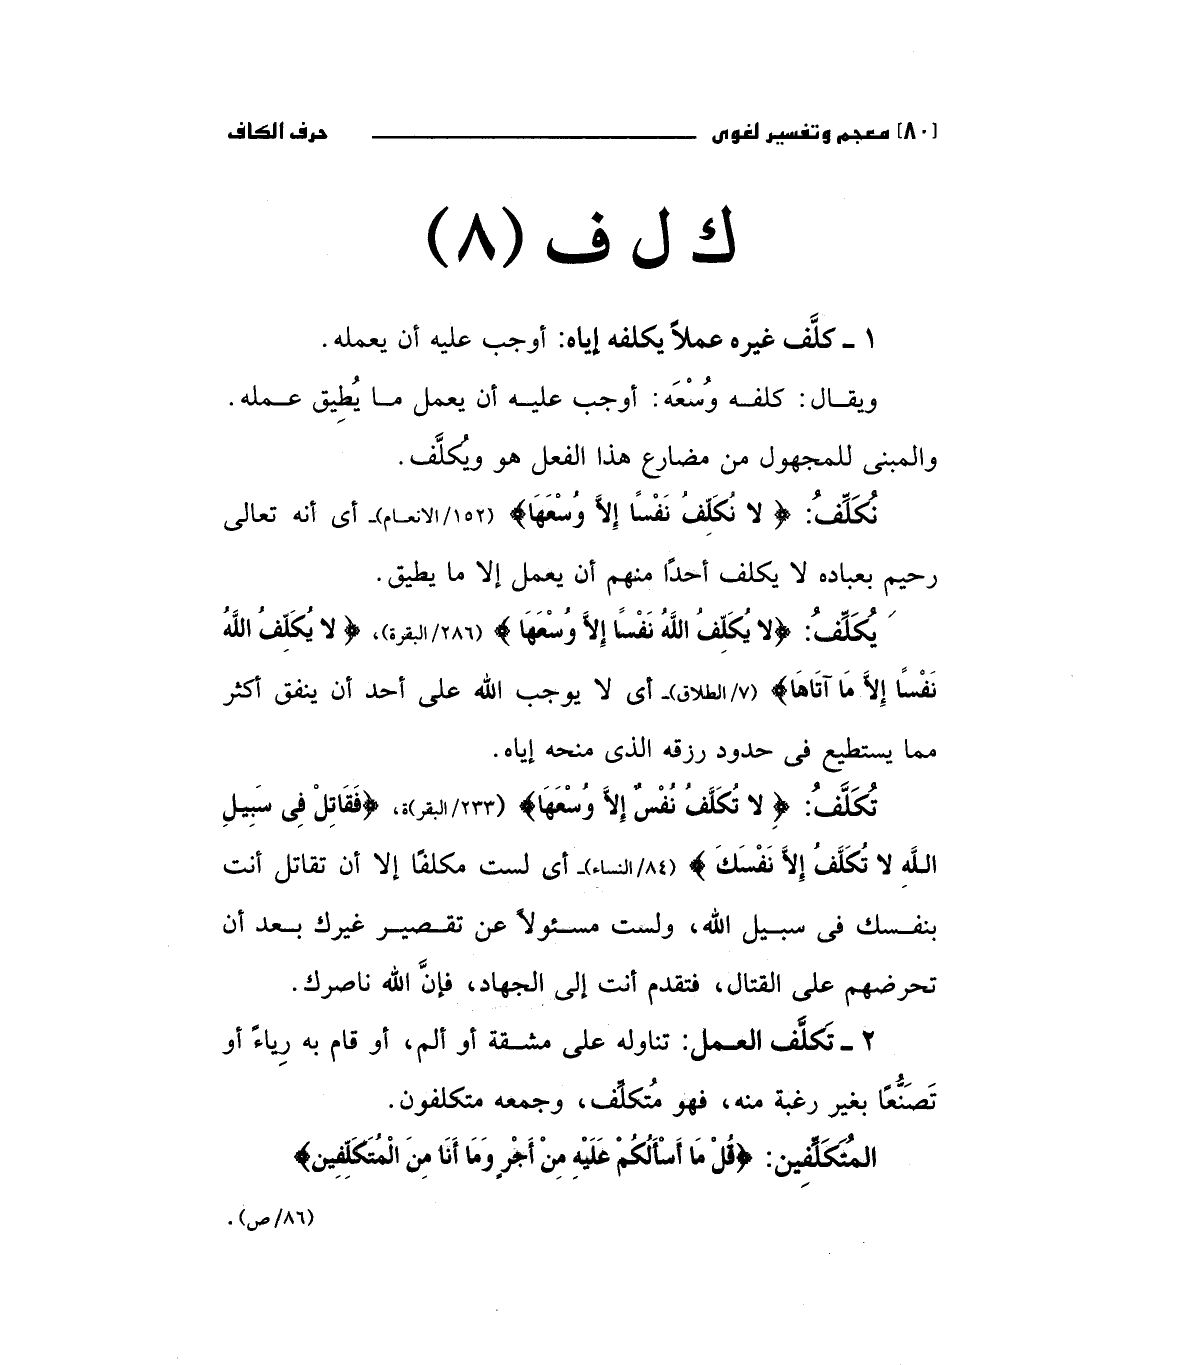 [٨٠] معجم وتفسير لغوى حرف الكاف
ك ل ف (٨)
١ ـ كلَّف غيره عملاً يكلفه إياه: أوجب عليه أن يعمله.
ويقال: كلفه وُسْعَه: أوجب عليه أن يعمل ما يُطِيق عمله.
والمبنى للمجهول من مضارع هذا الفعل هو ويُكلَّف.
نُكَلِّفُ: ﴿ لا نُكَلِّفُ نَفْسًا إِلاَّ وُسْعَهَا﴾ (١٥٢/الانعام)ـ أى أنه تعالى
رحيم بعباده لا يكلف أحدًا منهم أن يعمل إلا ما يطيق.
يُكَلِّفُ: ﴿لا يُكَلِّفُ اللَّهُ نَفْسًا إِلاَّ وُسْعَهَا ﴾ (٢٨٦/البقرة)، ﴿ لا يُكَلِّفُ اللَّهُ
نَفْسًا إِلاَّ مَا آتَاهَا﴾ (٧/الطلاق)ـ أى لا يوجب الله على أحد أن ينفق أكثر
مما يستطيع فى حدود رزقه الذى منحه إياه.
تُكَلَّفُ: ﴿ لا تُكَلَّفُ نُفْسٌ إِلاَّ وُسْعَهَا﴾ (٢٣٣/البقر)ة، ﴿فَقَاتِلْ فِى سَبِيلِ
اللَّهِ لا تُكَلَّفُ إِلاَّ نَفْسَكَ ﴾ (٨٤/النساء)ـ أى لست مكلفًا إلا أن تقاتل أنت
بنفسك فى سبيل الله، ولست مسئولاً عن تقصير غيرك بعد أن
تحرضهم على القتال، فتقدم أنت إلى الجهاد، فإنَّ الله ناصرك.
٢ ـ تَكلَّف العمل: تناوله على مشقة أو ألم، أو قام به رِياءً أو
تَصَنُّعًا بغير رغبة منه، فهو مُتكلِّف، وجمعه متكلفون.
المُتَكَلِّفِين: ﴿قُلْ مَا أَسْأَلُكُمْ عَلَيْهِ مِنْ أَجْرٍ وَمَا أَنَا مِنَ الْمُتَكَلِّفِين﴾
(٨٦/ص).